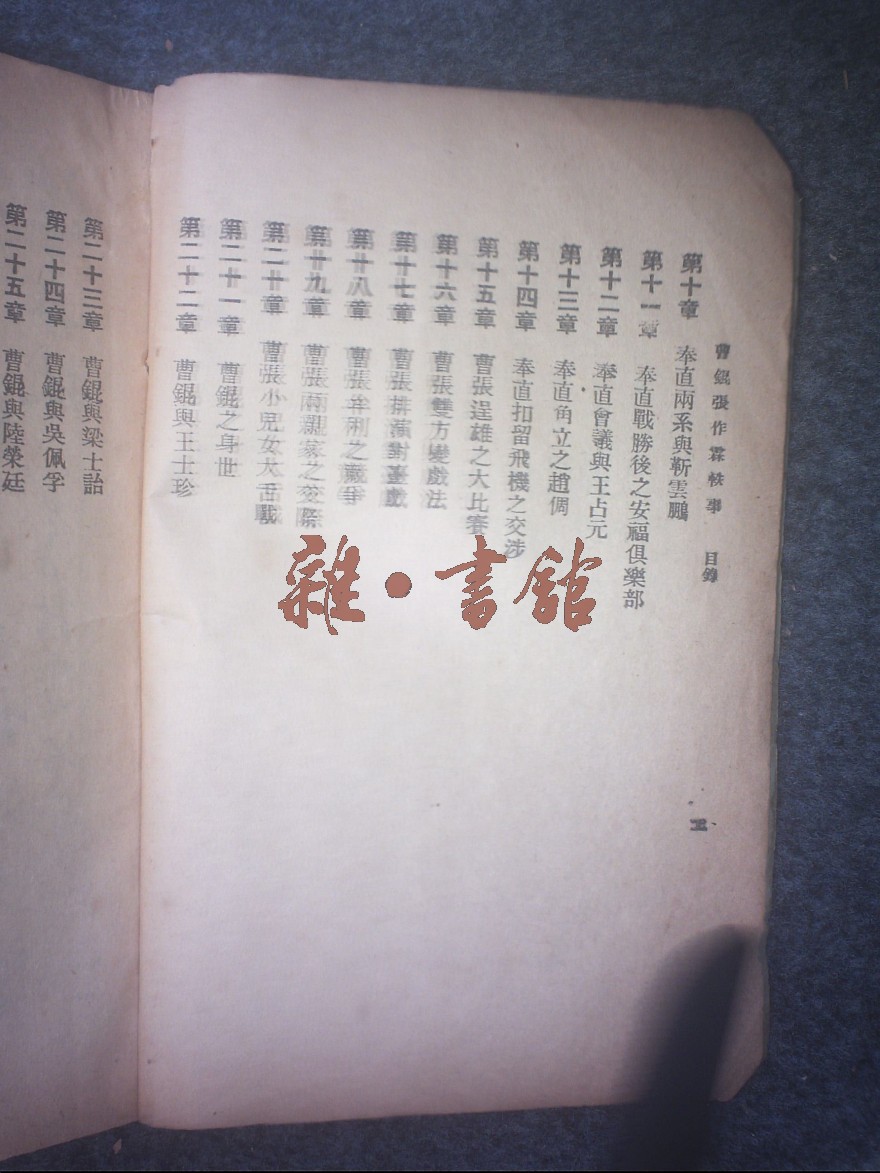 曹錕張作霖軼事 目錄
第十章 奉直兩系與靳雲鵬
第十一章 奉直戰勝後之安福俱樂部
第十二章 奉直會議與王占元
第十三章 奉直角立之趙倜
第十四章 奉直扣留飛機之交涉
第十五章 曹張逞雄之大比賽
第十六章 曹張雙方變戲法
第十七章 曹張排演對臺戲
第十八章 曹張之
第十九章 曹張兩親家之交際
第二十章 曹張小兒女大舌戰
第二十一章 曹錕之身世
第二十二章 曹錕與王士珍
第二十三章 曹錕與梁士詒
第二十四章 曹錕與吳佩孚
第二十五章 曹錕與陸榮廷
雜·書館